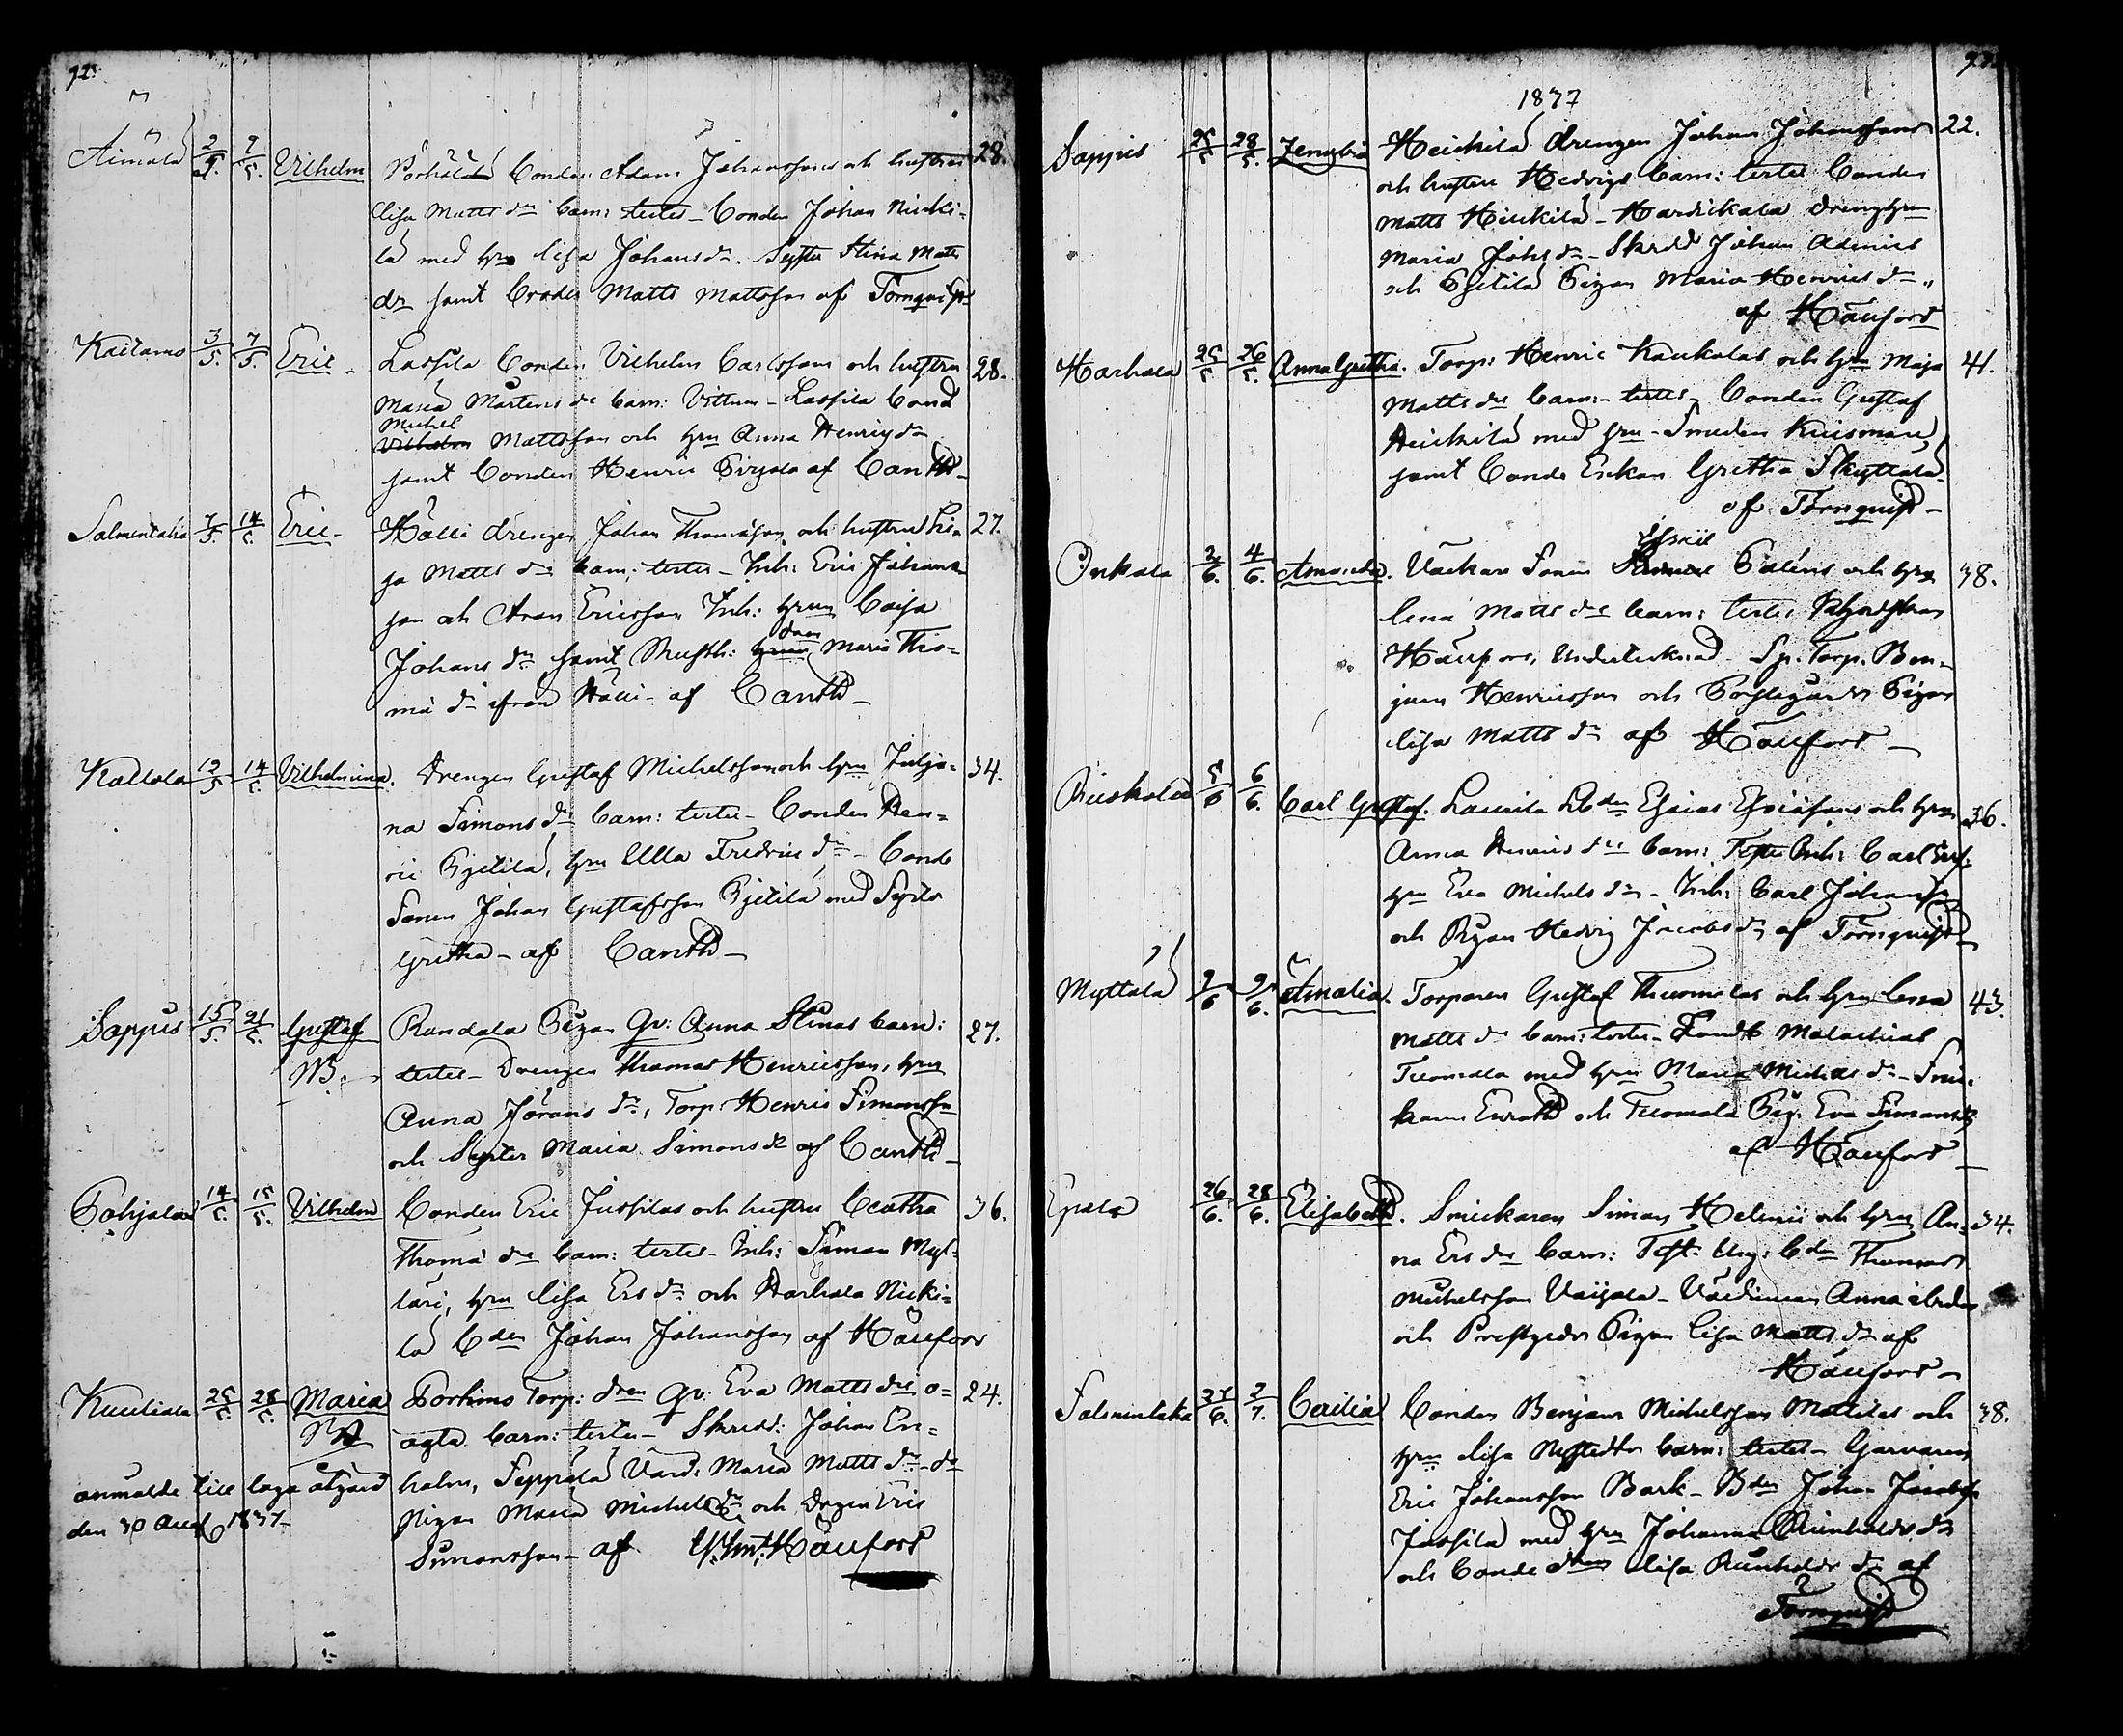 92.
Äimälä 2/5. 7/5. Vilhelm Pörhälän Bonden Adam Johanssons och hustrus 28.
Lisa Matts drs barn: testes - Bonden Johan Nicki-
lä med hru Lisa Johans dr. Syster Stina Matts
dr samt Broder Matts Mattsson af Törnqvist
Kaitamo 3/5. 7/5. Eric - Lassila Bonden Vilhelm Carlssons och hustru 28.
Maria Mårtens drs barn: Vittnen - Lassila Bond
Michel
Vilhelm Mattsson och hru Anna Henrics dr
samt Bonden Henric af Canth -
Salmentaka 7/5. 14/5. Eric - Hälli drengen Johan Thomasson och hustrus Li- 27.
sa Matts drs barn: testes - Inh: Eric Johans-
son och Aron Ericsson Inh: hrun Caisa
Johans dr samt Rusth: dotr Maria Tho-
mæ dr ifrån Hälli - af Canth -
Kallola 12/5 14/5. Vilhelmina. Drengen Gustaf Michelsson och hrus Julja- 34.
na Simons drs barn: testes - Bonden Hen-
ric Pjetilä, hru Ulla Fredrics dr - Bonde
Sonen Johan Gustafsson Pjetilä med Syster
Gretha - af Canth -
Sappis 15/5. 21/5. Gustaf Randala Pigan Qv: Anna Stinas barn: 27.
NB. testes - Drengen Thomas Henricsson, hru
Anna Jörans dr, Torp: Henric Simonsson
och Syster Maria Simons dr af Canth -
Pohjala 14/5. 15/5. Vilhelm Bonden Eric Jussilas och hustrus Beatha 36.
Thomæ drs barn: testes - Inh: Simon Myl-
läri, hru Lisa Ers dr och Harhala Nicki-
lä Bden Johan Johansson af Häufors
Kuuliala 25/5. 28/5. Maria Torp: dren Qv: Eva Matts drs o- 24.
NB ägta barn: testes - Skrädd: Johan En-
anmälde till laga åtgärd holm, Seppälä Värd: Maria Matts dr - do
den 30 Aug 1837 - Pigan Maria Michels dr och Drgen Eric
Simonsson - af Häufors
1837
Sappis 25/5 28/5. Zenobia Heickilä drengen Johan Johanssons 22.
och hustru Hedvigs barn: testes Bonden
Matts Heickilä - Hardickala drenghrun
Maria Johs dr - Skrdd Johan Adenius
och Pjetilä Pigan Maria Henrics dr
af Häufors
Harhala 25/5 26/5. Anna Gretha. Torp: Henric Kaukolas och hrus Maja 41.
Matts drs barn: - testes - Bonden Gustaf
Heickilä med hru - Smeden Kuisman,
samt Bonde Enkan Gretha Skyttälä
af Törnqvist -
Onkala 2/6. 4/6. Amanda. Väckare Sonen Pälens och hrus 38.
Lena Matts drs barn: testes
Häufors, Undertecknad Sp. Torp. Ben-
jam Henricsson och Prestgårds Pigan
Lisa Matts dr af Häufors -
5/6 6/6. Carl Gustaf. Laurila Bden Esaias Esaiassons och hrus 36.
Anna Henrics drs barn: Test: Inh: Carl
hru Eva Michels dr - Inh: Carl Johansson
och Pigan Hedvig Jacobs dr af Törnqvist -
Myttälä 7/6 9/6. Amalia. Torparen Gustaf Tuomolas och hrus Lena 43.
Matts drs barn: testes - Malachias
Tuomola med hru Maria Michels dr - Snic-
karen och Tuomola Pig. Eva Simonsdr
af Häufors -
Epola 26/6. 28/6. Elisabeth. Snickaren Simon Helenii och hrus An- 34.
na Ers drs barn: Test: Ung: Bden Thomas
Michelsson Vaijala - Värdinnan Anna
och Prestgrds Pigan Lisa Matts dr af
Häufors -
Salmentaka 27/6. 2/7. Cecilia Bonden Benjam Michelsson Mattilas och 38.
hrus Lisa Nystedts barn: testes - Garvaren
Eric Johansson Bark - Bden Johan Jacobss
Jussila med hru Johanna Reinholds dr
och Bonde dren Lisa Reinholds dr af
Törnqvist